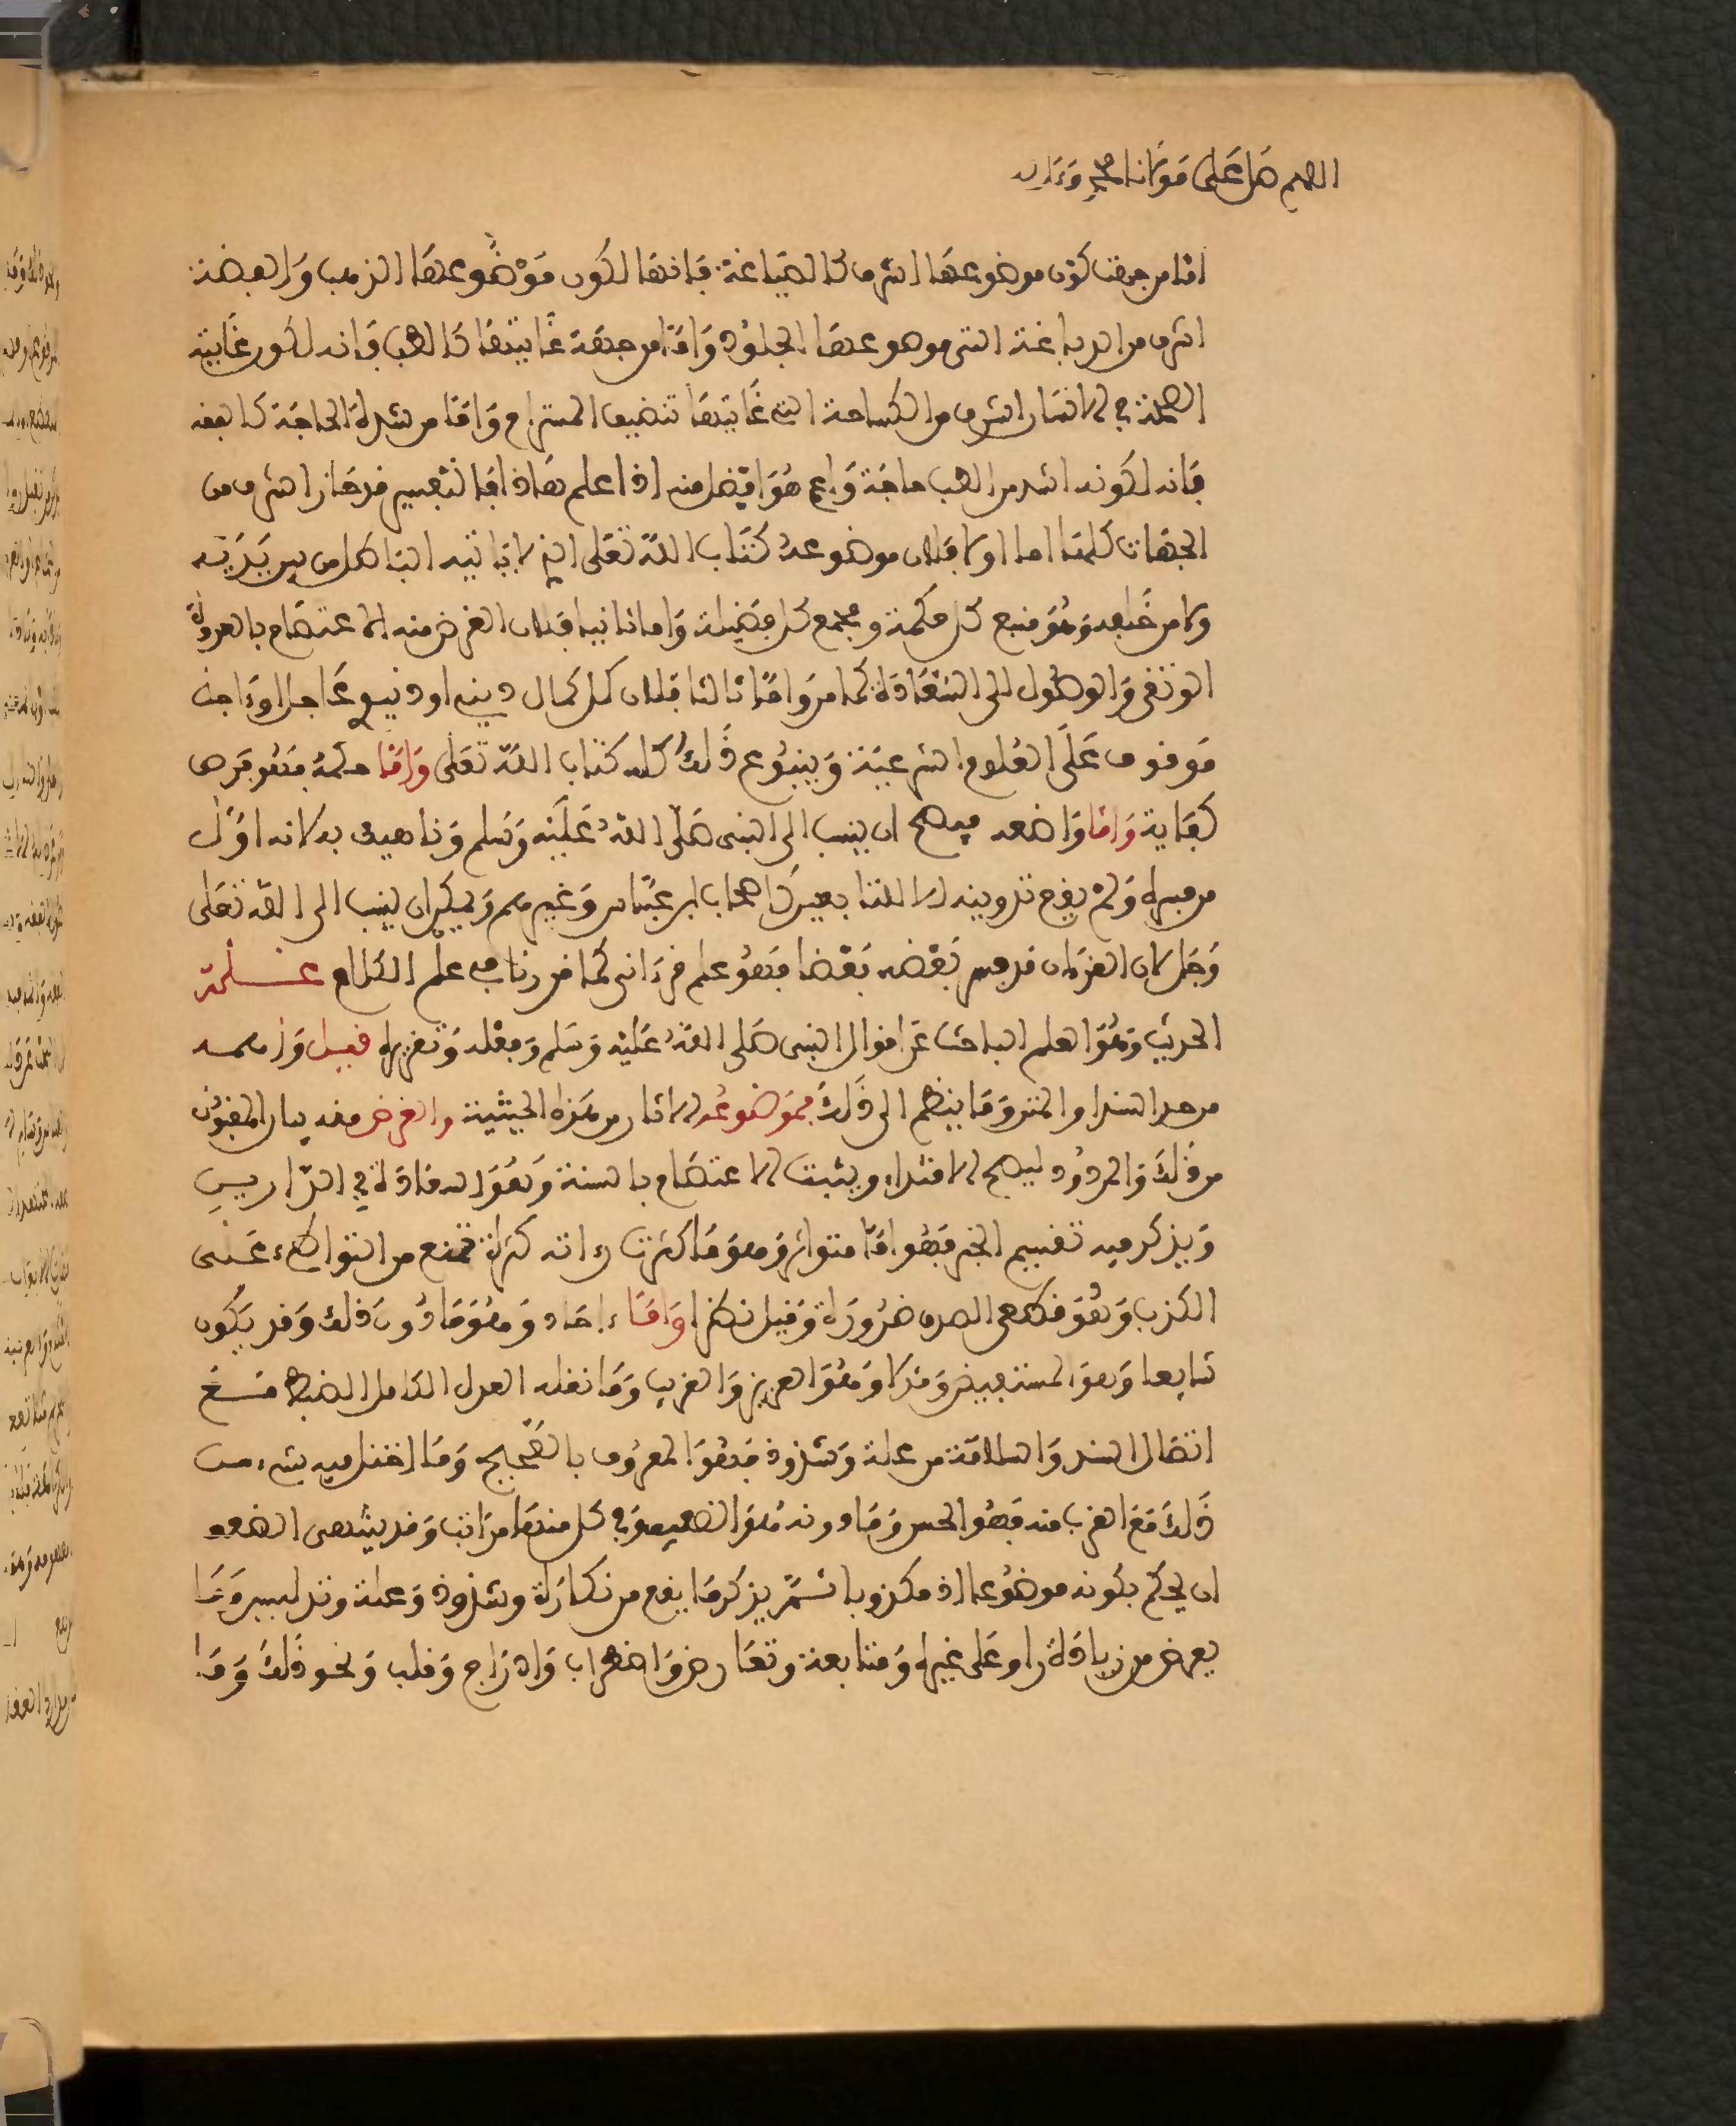 اللهم صل على مولانا محمد وءاله
اما من جهة كون موضوعها اشرف كالصياغة فانها لكون موضوعها الذهب والفضة
اشرف من الدباغة التي موضوعها الجلود واما من جهة غايتها كالطب فانه لكون غايته
الصحة في الانسان اشرف من الكساحة التي غايتها تنضيف المستراح واما من شدة الحاجة كالفقه
فانه لكونه اشد من الطب حاجة واعم هو افضل منه اذا علم هاذا فالتفسير قد حاز الشرف من
الجهات كلها اما اولا فلان موضوعه كتاب الله تعلى الذي لا ياتيه الباطل من بين يديه
ولا من خلفه وهو منبع كل حكمة ومجمع كل فضيلة واما ثانيا فلان الغرض منه الاعتصام بالعروة
الوثقى والوصول الى السعادة كما مر واما ثالثا فلان كل كمال ديني او دنيوي عاجل او ءاجل
موقوف على العلوم الشرعية وينبوع ذلك كله كتاب الله تعلى واما حكمه فهو فرض
كفاية واما واضعه فيصح ان ينسب الى النبي صلى الله عليه وسلم وناهيك به لانه اول
من فسره ولم يقع تدوينه الا للتابعين كاصحاب ابن عباس وغيرهم ويمكن ان ينسب الى الله تعلى
وجل لان القرءان قد فسر بعضه بعضا فهو علم قرءاني كما قررنا في علم الكلام علم
الحديث وهو العلم الباحث عن اقوال النبي صلى الله عليه وسلم وفعله وتقريره قيل
من حد السند او المتن وما ينضم الى ذلك فموضوعه الاثار من هذه الحيثية والغرض منه بيان المقبول
من ذلك والمردود ليصح الاقتداء ويثبت الاعتصام بالسنة وهو السعادة في الدارين
ويذكر فيه تقسيم الخبر فهو اما متواتر وهو ما كثرت رواته كثرة تمنع من التواطئ على
الكذب وهو قطعي الصدق ضرورة وقيل نظرا واما ءاحاد وهو ما دون ذلك وقد يكون
شايعا وهو المستفيض وهو العزيز والغريب وما نقله العدل الكامل الضبط مع
اتصال السند والسلامة من علة وشذوذ فهو المعروف بالصحيح وما اختل فيه شيء من
ذلك مع القرب منه فهو الحسن وما دونه هو الضعيف وفي كل منهما مراتب وقد ينتهي الضعف
ان يحكم بكونه موضوعا اذ مكذوبا ثم يذكر ما يقع من نكارة وشذوذ وعلة وتدليس وما
يعرض من زيادة راو على غيره ومتابعة وتعارض واضطراب وادراج وقلب ونحو ذلك وما